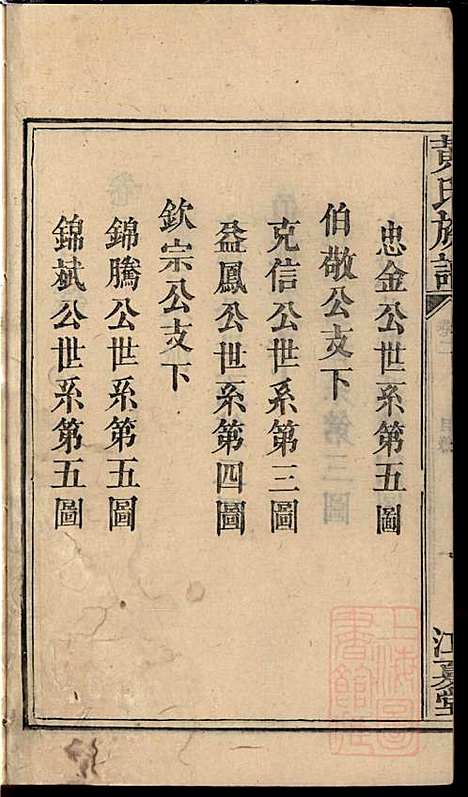 黄氏族譜
卷二
目錄
一
江夏堂
忠金公世系第五圖
伯敬公支下
克信公世系第三圖
益鳳公世系第四圖
欽宗公支下
錦騰公世系第五圖
錦斌公世系第五圖
上海圖書館藏